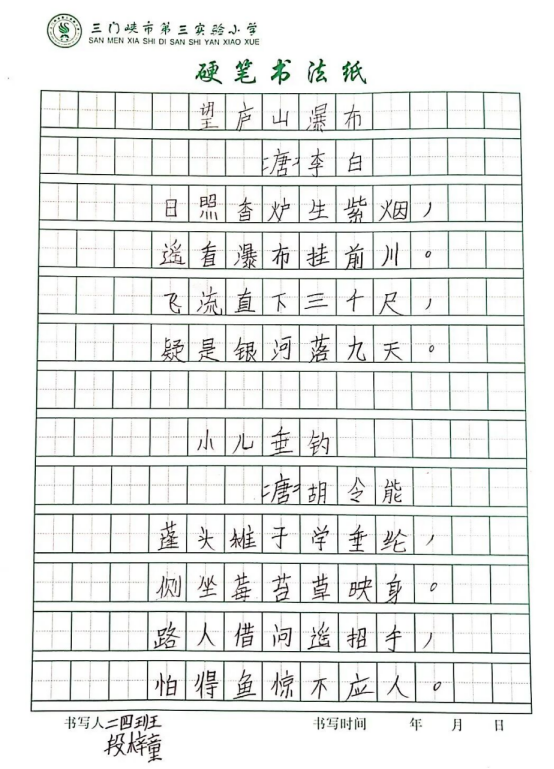 三门峡市第三实验小学
SAN MEN XIA SHI DI SAN SHI YAN XIAO XUE
硬笔书法纸
望庐山瀑布
[唐]李白
日照香炉生紫烟，
遥看瀑布挂前川。
飞流直下三千尺，
疑是银河落九天。
小儿垂钓
[唐]胡令能
蓬头稚子学垂纶，
侧坐莓苔草映身。
路人借问遥招手，
怕得鱼惊不应人。
书写人二四班 书写时间 年 月 日
段梓童